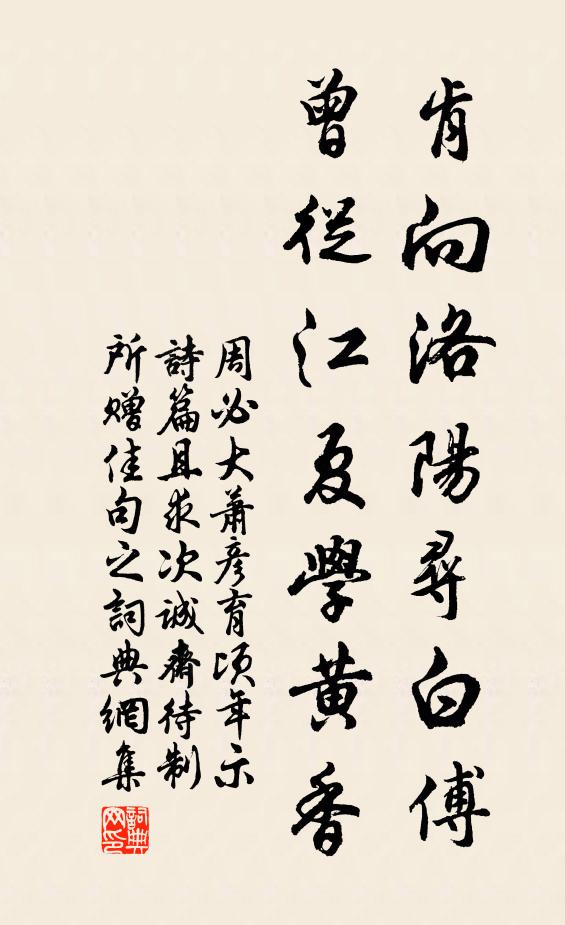 肯向洛陽尋白傅
曾從江夏學黃香
周必大蕭彥育頃年示
詩篇且求次誠齋待制
所贈佳句之詞典網集
詞典
网印